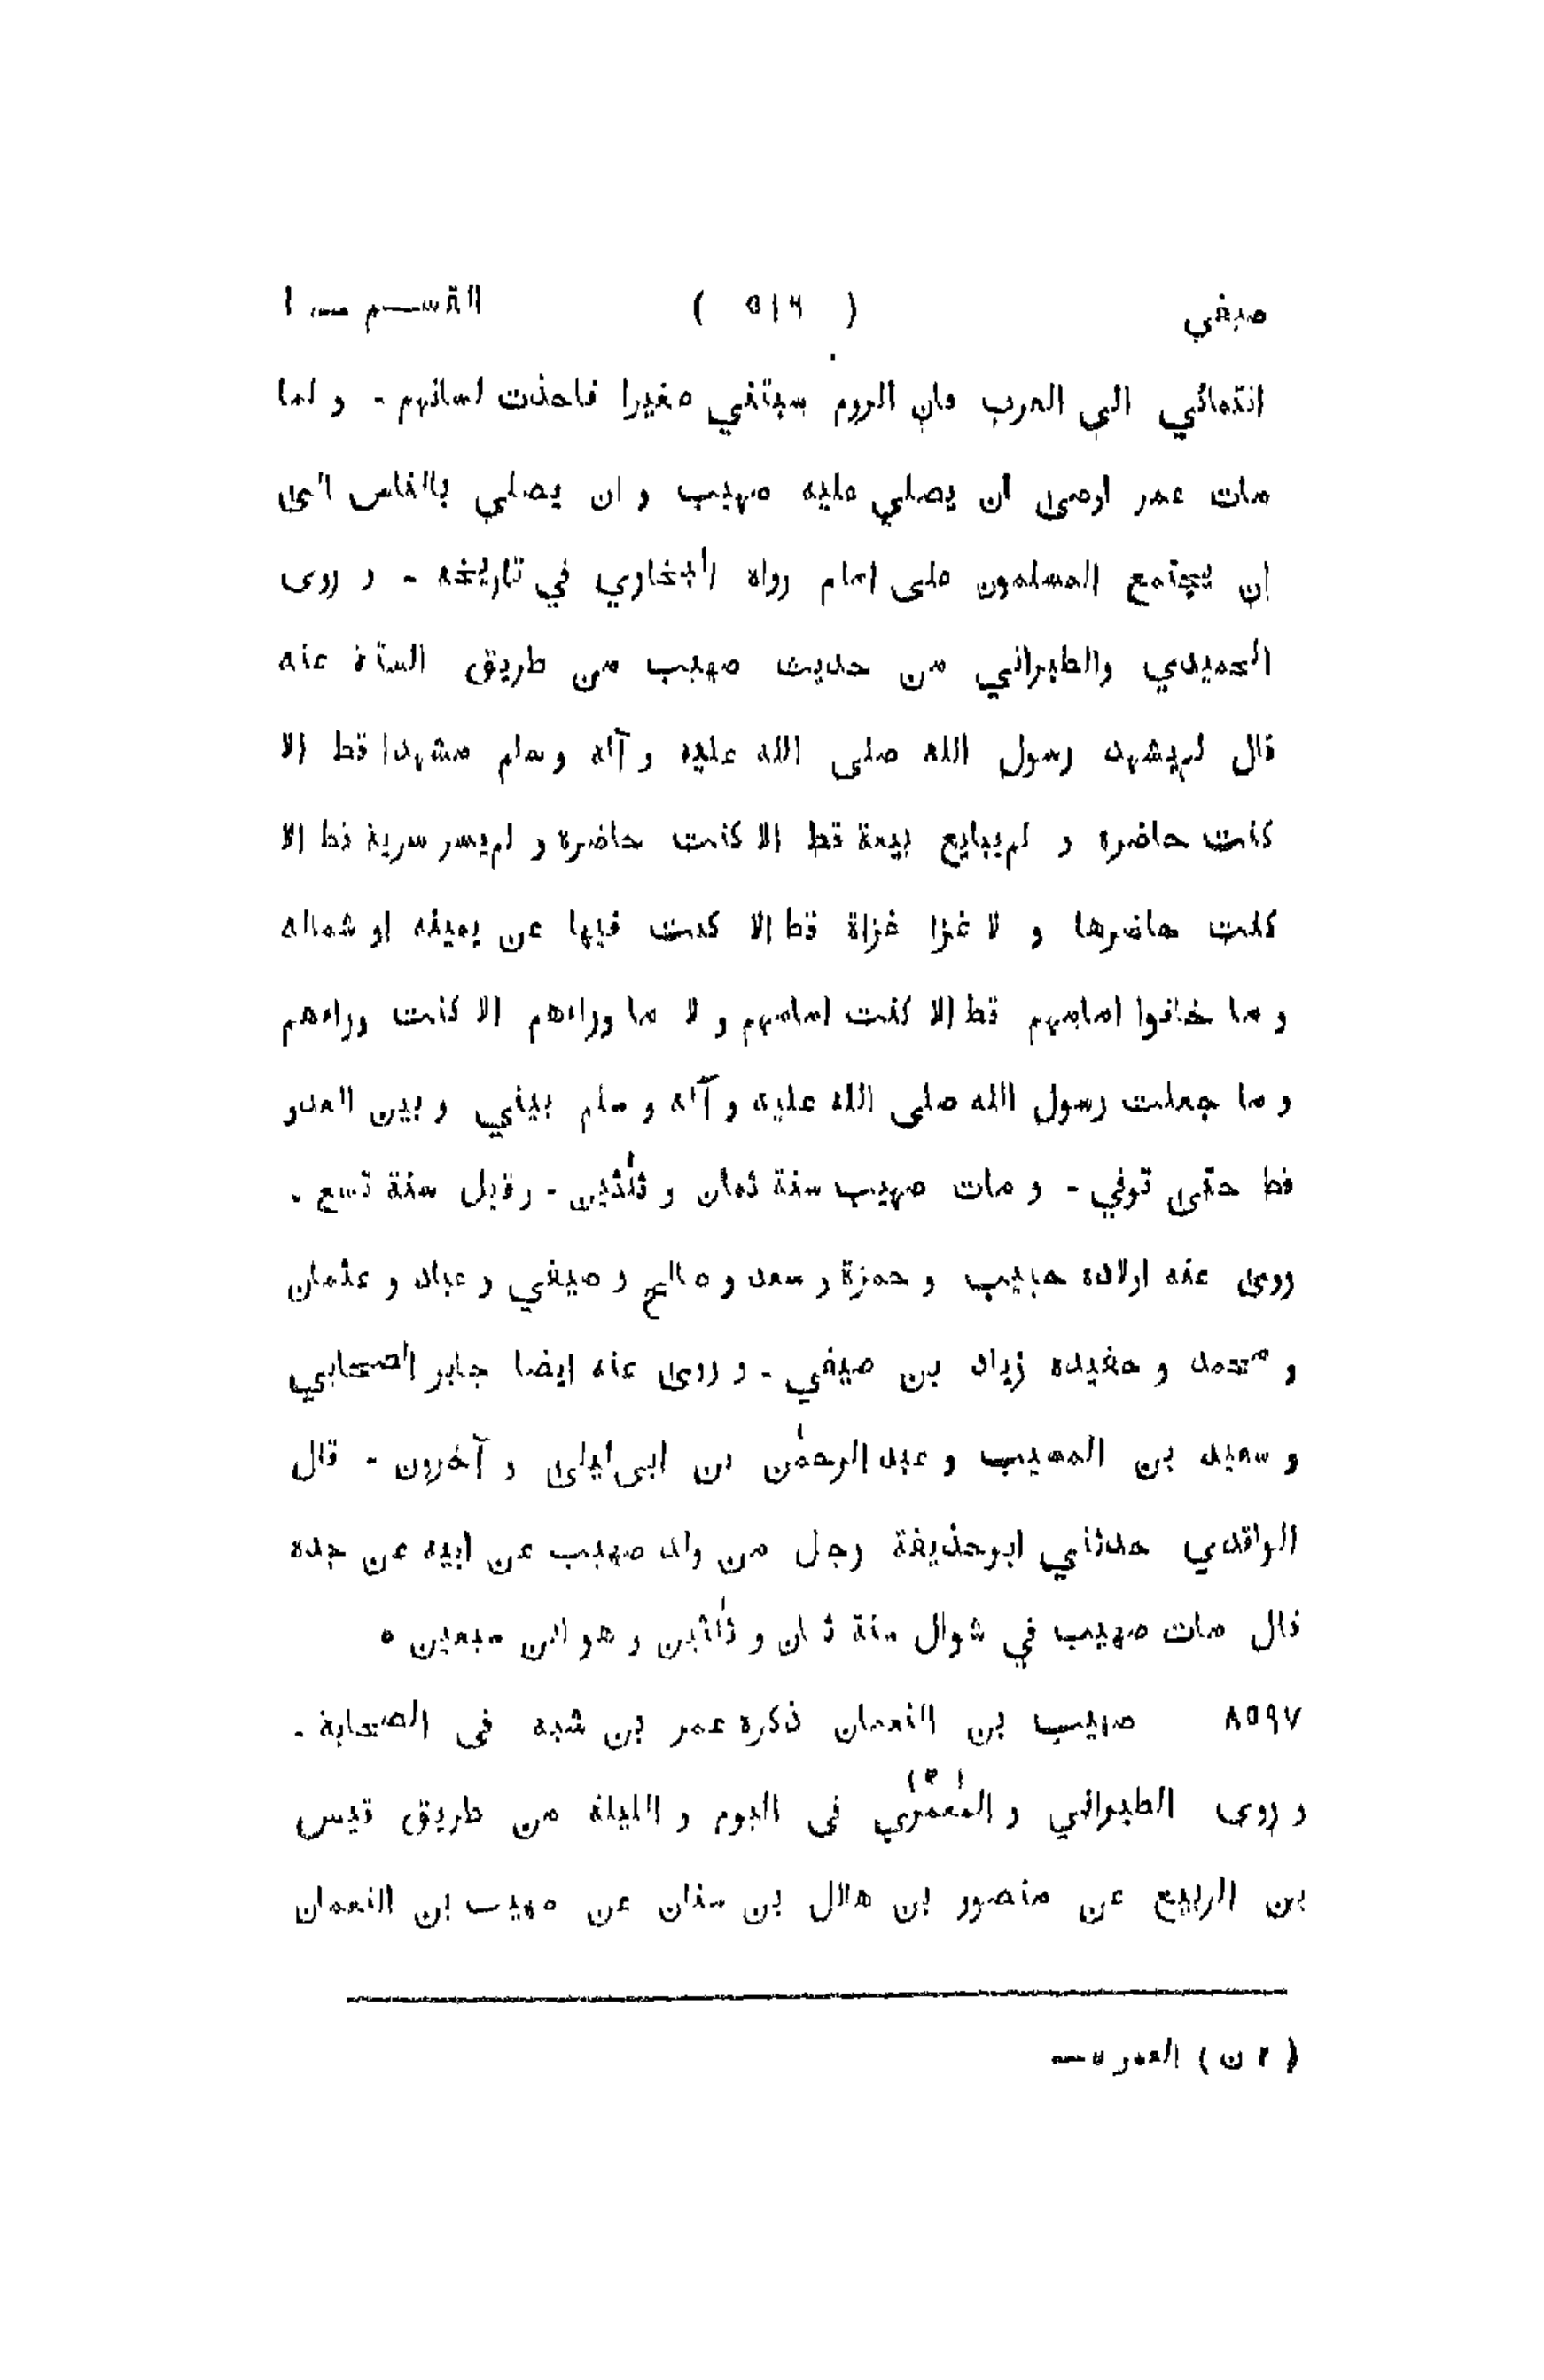 صيفي ( ٥١٦ ) القسم — ١
انتمائي الى العرب فان الروم سبتني صغيرا فاخذت لسانهم - و لما
مات عمر اوصى ان يصلي عليه صهيب و ان يصلي بالناس الى
ان يجتمع المسلمون على امام رواه البخاري في تاريخه - و روى
الحميدي والطبراني من حديث صهيب من طريق الستة عنه
قال لم يشهد رسول الله صلى الله عليه و آله وسلم مشهدا قط الا
كنت حاضره و لم يبايع بيعة قط الا كنت حاضره و لم يسر سرية قط الا
كنت حاضرها و لا غزا غزاة قط الا كنت فيها عن يمينه او شماله
و ما خافوا امامهم قط الا كنت امامهم و لا ما وراءهم الا كنت وراءهم
و ما جعلت رسول الله صلى الله عليه و آله و سلم بيني و بين العدو
قط حتى توفي - و مات صهيب سنة ثمان و ثلٰثين - و قيل سنة تسع -
روى عنه اولاده حبيب و حمزة و سعد و صالح و صيفي و عباد و عثمان
و محمد و حفيده زياد بن صيفي - و روى عنه ايضا جابر الصحابي
و سعيد بن المسيب و عبد الرحمٰن بن ابى ليلى و آخرون - قال
الواقدي حدثني ابو حذيفة رجل من ولد صهيب عن ابيه عن جده
قال مات صهيب في شوال سنة ثمان و ثلٰثين و هو ابن سبعين ٥
٨٥٩٧ صهيب بن النعمان ذكره عمر بن شبه فى الصحابة -
و روى الطبراني و المَعمَري (٢) فى اليوم و الليلة من طريق قيس
بن الربيع عن منصور بن هلال بن سنان عن صهيب بن النعمان
( ٢ ن ) العمر ه —